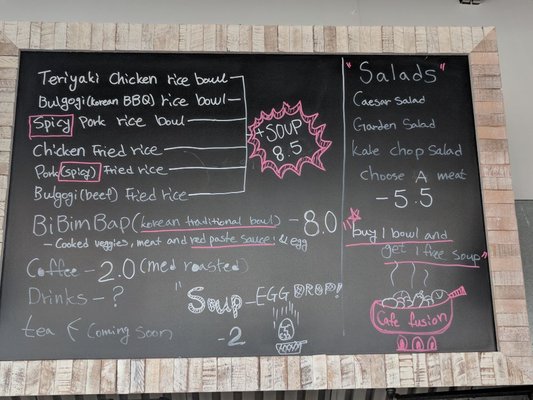 Teriyaki Chicken rice bowl
Bulgogi (Korean BBQ) rice bowl
Spicy Pork rice bowl
Chicken Fried rice
Pork (spicy) Fried rice
Bulgogi (beef) Fried rice
+ SOUP
8.5
BiBimBap (korean traditional bowl) - 8.0
- Cooked veggies, meat and red paste sauce, & egg
Coffee - 2.0 (med roasted)
Drinks - ?
tea ( Coming soon
"Soup - EGG DROP!"
- 2
"Salads"
Caesar Salad
Garden Salad
Kale chop Salad
Choose A meat
- 5.5
"buy 1 bowl and
get 1 free soup"
Cafe fusion